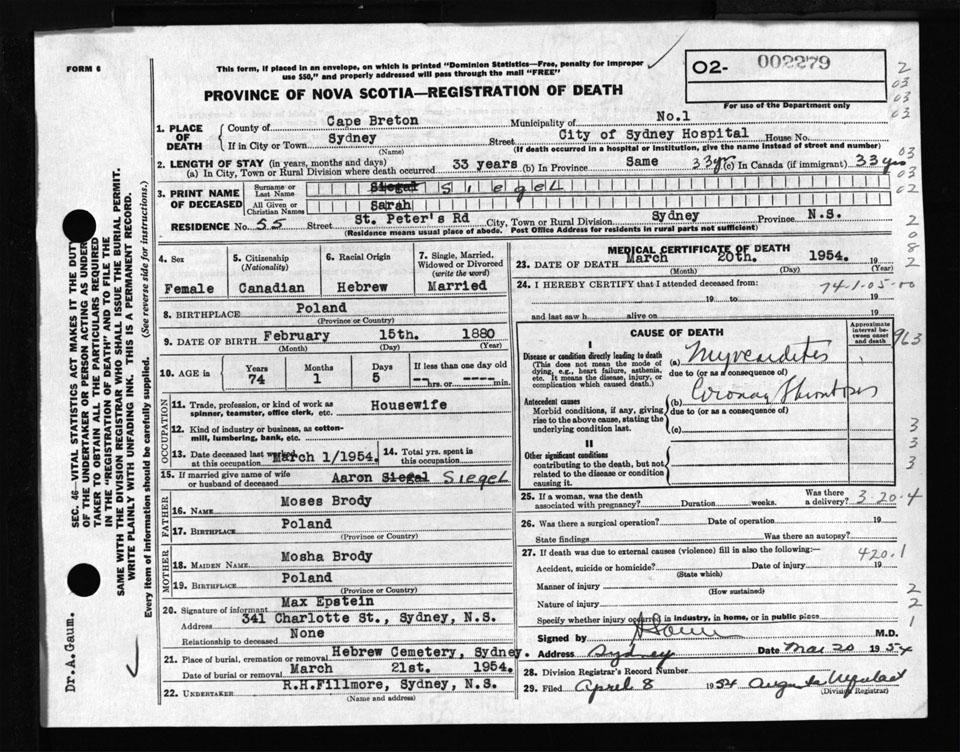 FORM 6
This form, if placed in an envelope, on which is printed "Dominion Statistics—Free, penalty for improper
use $50," and properly addressed will pass through the mail "FREE"
PROVINCE OF NOVA SCOTIA—REGISTRATION OF DEATH
O2- 002279
For use of the Department only
1. PLACE OF DEATH
County of Cape Breton Municipality of No.1
If in City or Town Sydney Street City of Sydney Hospital House No.
(Name) (If death occurred in a hospital or institution, give the name instead of street and number)
2. LENGTH OF STAY (in years, months and days)
(a) In City, Town or Rural Division where death occurred 33 years (b) In Province Same 33 yrs (c) In Canada (if immigrant) 33 yrs
3. PRINT NAME OF DECEASED
Surname or Last Name Siegal SiegeL
All Given or Christian Names Sarah
RESIDENCE No. 55 Street St. Peter's Rd City, Town or Rural Division Sydney Province N.S.
(Residence means usual place of abode. Post Office Address for residents in rural parts not sufficient)
4. Sex
Female
5. Citizenship
(Nationality)
Canadian
6. Racial Origin
Hebrew
7. Single, Married,
Widowed or Divorced
(write the word)
Married
8. BIRTHPLACE Poland
(Province or Country)
9. DATE OF BIRTH February 15th. 1880
(Month) (Day) (Year)
10. AGE in
Years 74
Months 1
Days 5
If less than one day old
--hrs. or ----min.
OCCUPATION
11. Trade, profession, or kind of work as
spinner, teamster, office clerk, etc. Housewife
12. Kind of industry or business, as cotton-
mill, lumbering, bank, etc.
13. Date deceased last worked
at this occupation March 1/1954.
14. Total yrs. spent in
this occupation
15. If married give name of wife
or husband of deceased Aaron Siegal SiegeL
FATHER
16. NAME Moses Brody
17. BIRTHPLACE Poland
(Province or Country)
MOTHER
18. MAIDEN NAME Mosha Brody
19. BIRTHPLACE Poland
(Province or Country)
20. Signature of informant Max Epstein
Address 341 Charlotte St., Sydney, N.S.
Relationship to deceased None
21. Place of burial, cremation or removal Hebrew Cemetery, Sydney.
Date of burial or removal March 21st. 1954.
22. UNDERTAKER R.H.Fillmore, Sydney, N.S.
(Name and address)
MEDICAL CERTIFICATE OF DEATH
23. DATE OF DEATH March 20th. 1954. 19
(Month) (Day) (Year)
24. I HEREBY CERTIFY that I attended deceased from:
74-1-05-00
19 to 19
and last saw h alive on 19
CAUSE OF DEATH
Approximate interval between onset and death
I
Disease or condition directly leading to death
(This does not mean the mode of
dying, e.g., heart failure, asthenia,
etc. It means the disease, injury, or
complication which caused death.)
(a) Myocarditis
due to (or as a consequence of)
Antecedent causes
Morbid conditions, if any, giving
rise to the above cause, stating the
underlying condition last.
(b) Coronary Thrombosis
due to (or as a consequence of)
(c)
II
Other significant conditions
contributing to the death, but not
related to the disease or condition
causing it.
25. If a woman, was the death
associated with pregnancy? Duration weeks. Was there
a delivery? 3-20-4
26. Was there a surgical operation? Date of operation 19
State findings Was there an autopsy?
27. If death was due to external causes (violence) fill in also the following:— 420.1
Accident, suicide or homicide? Date of injury 19
(State which)
Manner of injury
(How sustained)
Nature of injury
Specify whether injury occurred in industry, in home, or in public place
Signed by M.D.
Address Sydney Date Mar 20 1954
28. Division Registrar's Record Number
29. Filed April 8 1954 Augusta
(Division Registrar)
2
03
03
02
03
03
02
2
0
8
2
963
3
3
3
2
2
1
SEC. 46—VITAL STATISTICS ACT MAKES IT THE DUTY
OF THE UNDERTAKER OR PERSON ACTING AS UNDER-
TAKER TO OBTAIN ALL THE PARTICULARS REQUIRED
IN THE "REGISTRATION OF DEATH" AND TO FILE THE
SAME WITH THE DIVISION REGISTRAR WHO SHALL ISSUE THE BURIAL PERMIT.
WRITE PLAINLY WITH UNFADING INK. THIS IS A PERMANENT RECORD.
Every item of information should be carefully supplied. (See reverse side for instructions.)
Dr.A.Gaum.